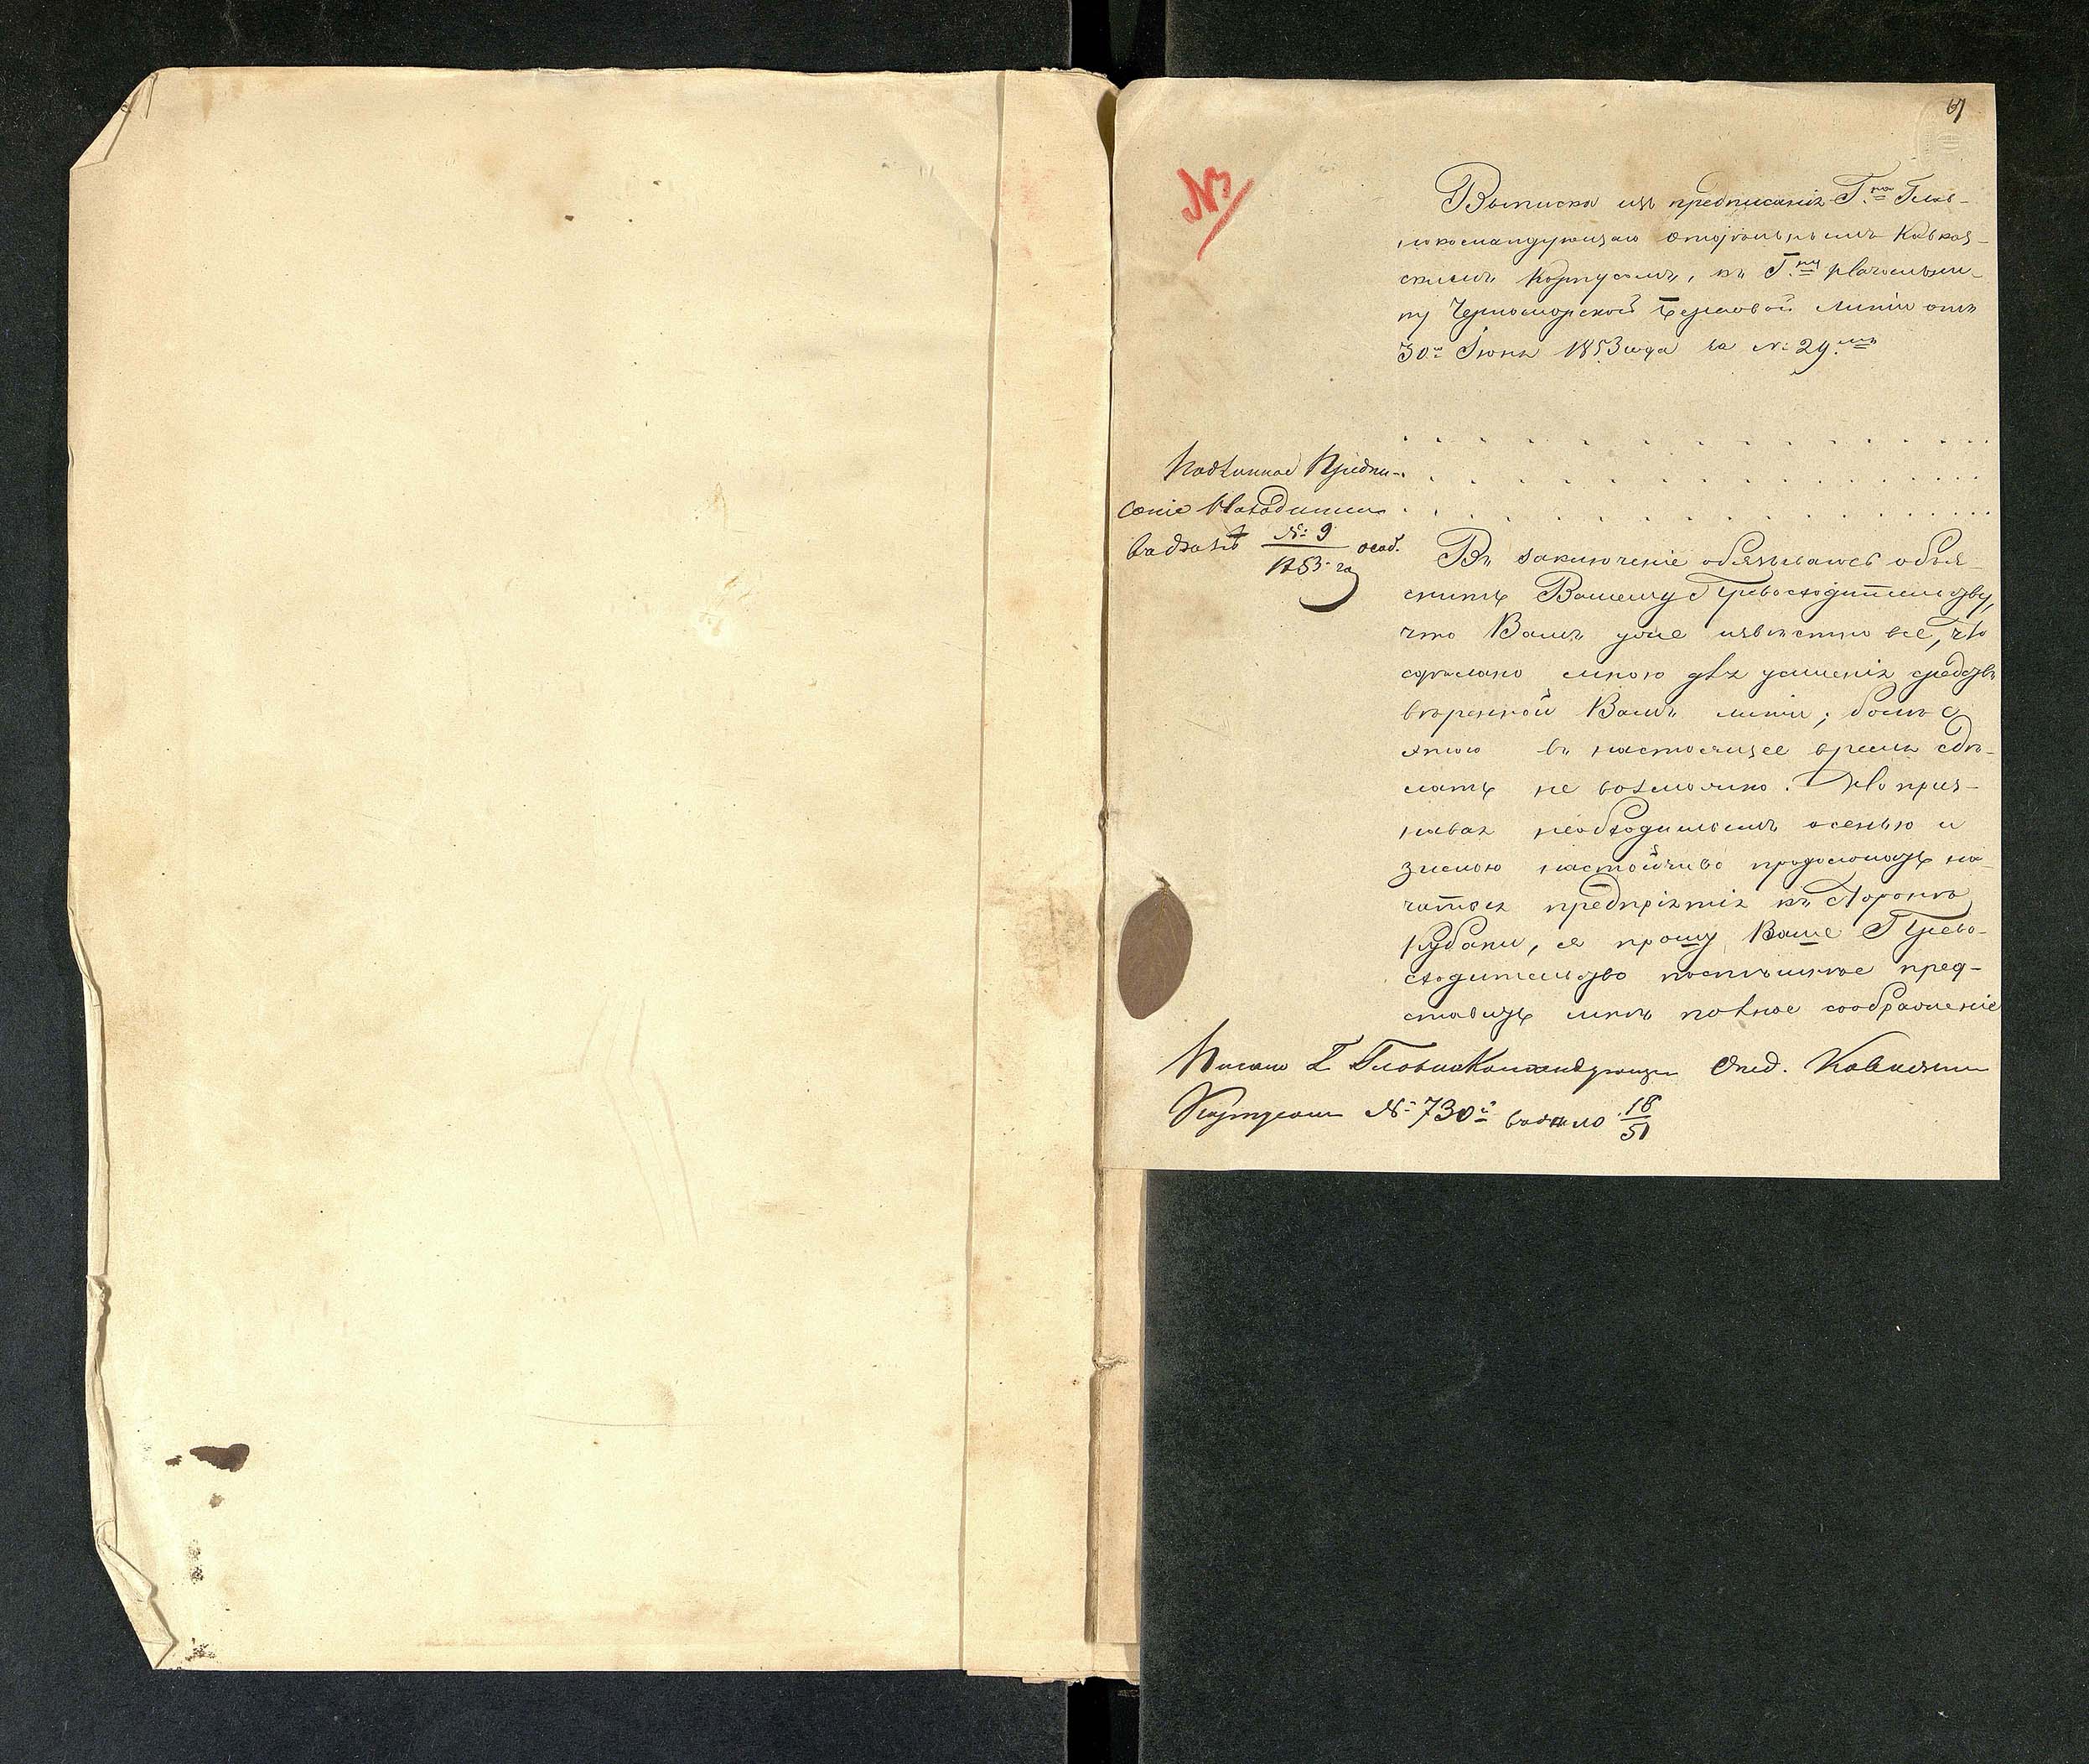 №
Выписка изъ предписанія Г.на Глав-
нокомандующаго отдѣльнымъ Кавказ-
скимъ Корпусомъ, къ Г.ну Начальни-
ку Черноморской береговой линіи отъ
30го Іюня 1853 года за № 29.мъ
Подлинное Предпи-
саніе Находится
въ дѣлѣ № 9 / 1853 го особ.
Въ заключеніе обязываюсь объя-
снить Вашему Превосходительству,
что Вамъ уже извѣстно все, что
сдѣлано мною для усиленія средствъ
ввѣренной Вамъ линіи; болѣе
этого въ настоящее время сдѣ-
лать не возможно. Но приз-
навая необходимымъ осенью и
зимою настойчиво продолжать на-
чатыя предпріятія въ сторонѣ
Кубани, я прошу Ваше Прево-
сходительство поспѣшнѣе пред-
ставить мнѣ полное соображеніе
Писано Г Главнокомандующ Отд. Кавказким
Корпусом №: 730й 18/51